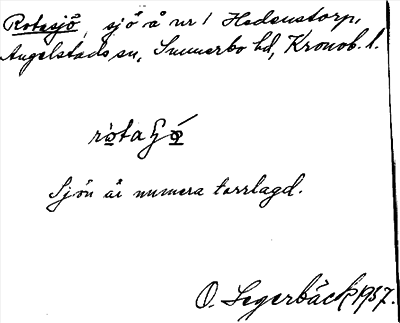 Rotasjö, sjö å nr 1 Hedenstorp,
Angelstads sn, Sunnerbo hd, Kronob. l.
Sjön är numera torrlagd.
O. Segerbäck 1937.